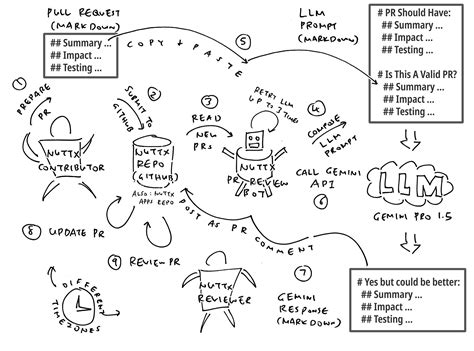 PULL REQUEST
(MARKDOWN)
## Summary ...
## Impact ...
## Testing ...
COPY + PASTE
⑤
LLM
PROMPT
(MARKDOWN)
# PR Should Have:
## Summary ...
## Impact ...
## Testing ...
# Is This A Valid PR?
## Summary ...
## Impact ...
## Testing ...
①
PREPARE
PR
NUTTX
CONTRIBUTOR
②
SUBMIT TO
GITHUB
NUTTX
REPO
(GITHUB)
ALSO: NUTTX
APPS REPO
③
READ
NEW
PRs
RETRY LLM
UP TO 3 TIMES
NUTTX
PR REVIEW
BOT
④
COMPOSE
LLM
PROMPT
CALL GEMINI
API
⑥
LLM
GEMINI PRO 1.5
POST AS PR COMMENT
⑦
GEMINI
RESPONSE
(MARKDOWN)
# Yes but could be better:
## Summary ...
## Impact ...
## Testing ...
⑧ UPDATE PR
⑨ REVIEW PR
NUTTX
REVIEWER
DIFFERENT
TIMEZONES